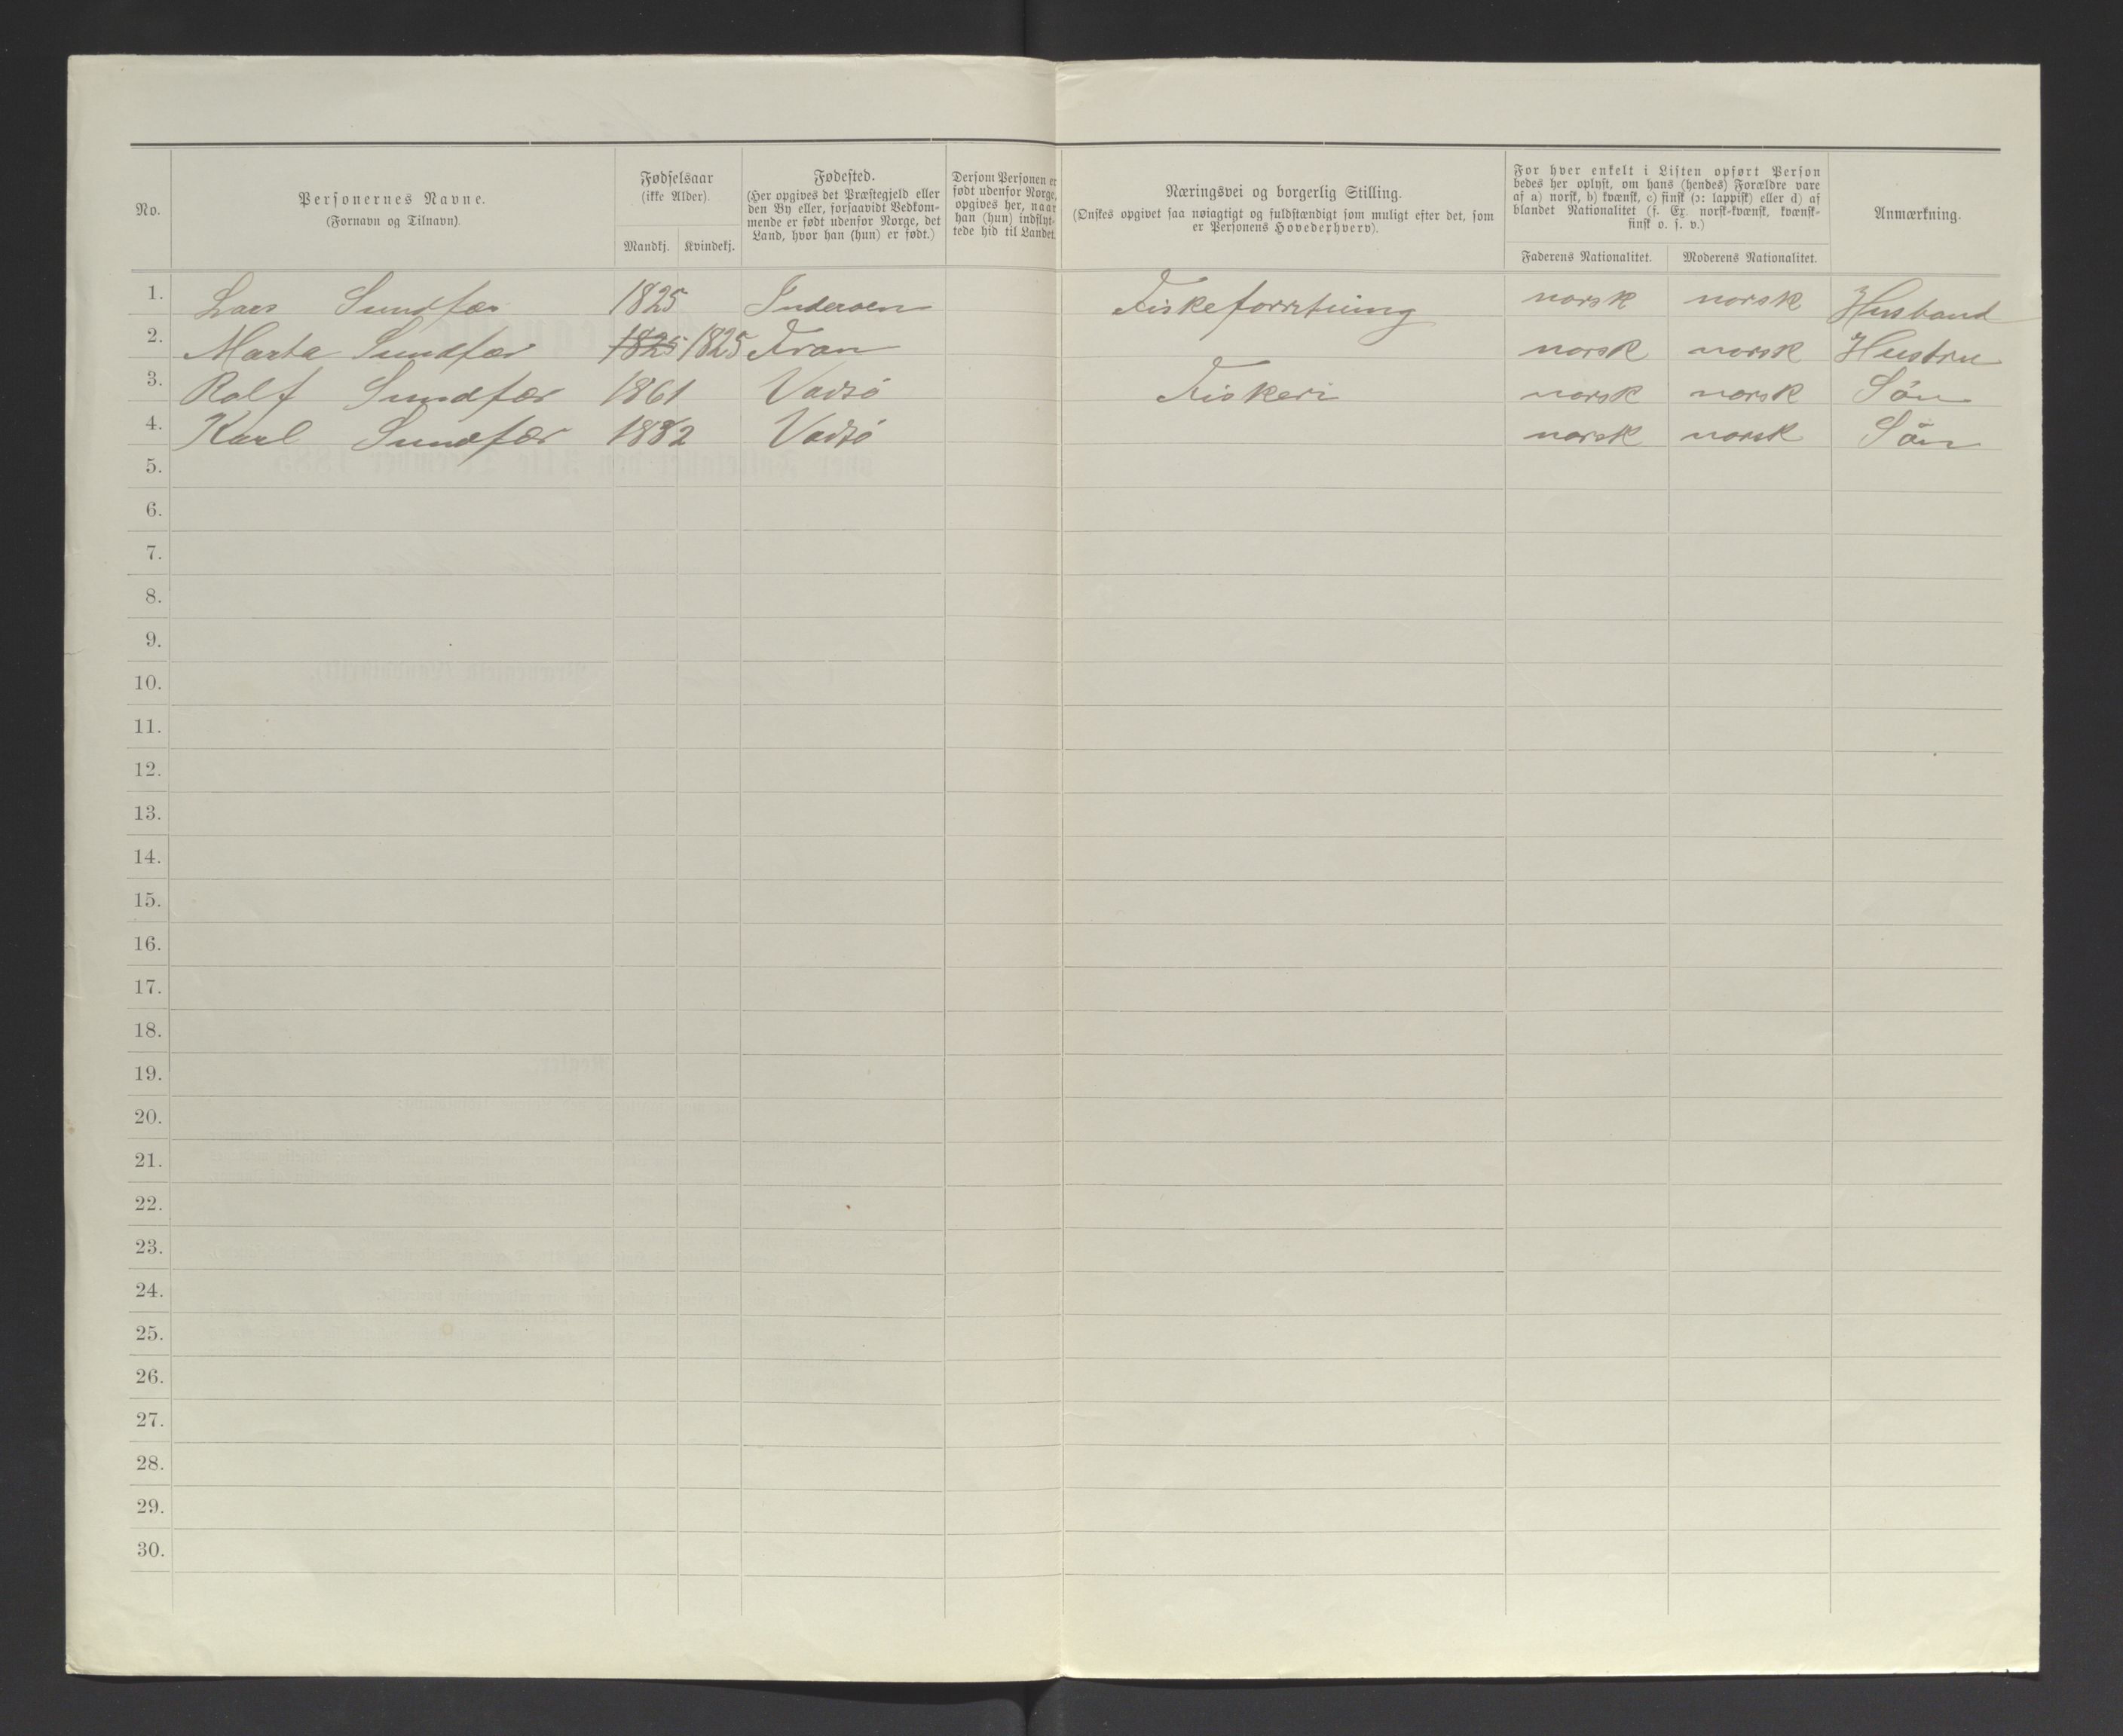 No.
Personernes Navne.
(Fornavn og Tilnavn).
Fødselsaar
(ikke Alder).
Mandkj. Kvindekj.
Fødested.
(Her opgives det Præstegjeld eller
den By eller, forsaavidt Vedkom-
mende er født udenfor Norge, det
Land, hvor han (hun) er født.)
Dersom Personen er
født udenfor Norge,
opgives her, naar
han (hun) indflyt-
tede hid til Landet.
Næringsvei og borgerlig Stilling.
(Ønskes opgivet saa nøiagtigt og fuldstændigt som muligt efter det, som
er Personens Hovederhverv).
For hver enkelt i Listen opført Person
bedes her oplyst, om hans (hendes) Forældre vare
af a) norsk, b) kvænsk, c) finsk (ɔ: lappisk) eller d) af
blandet Nationalitet (f. Ex. norsk-kvænsk, kvænsk-
finsk o. s. v.)
Faderens Nationalitet. Moderens Nationalitet.
Anmærkning.
1. Lars Sundfær 1825 Inderøen Fiskeforretning norsk norsk Husband
2. Marta Sundfær 1825 1825 norsk norsk Hustru
3. Rolf Sundfær 1861 Vadsö Fiskeri norsk norsk Sön
4. Karl Sundfær 1882 Vadsö norsk norsk Sön
5.
6.
7.
8.
9.
10.
11.
12.
13.
14.
15.
16.
17.
18.
19.
20.
21.
22.
23.
24.
25.
26.
27.
28.
29.
30.